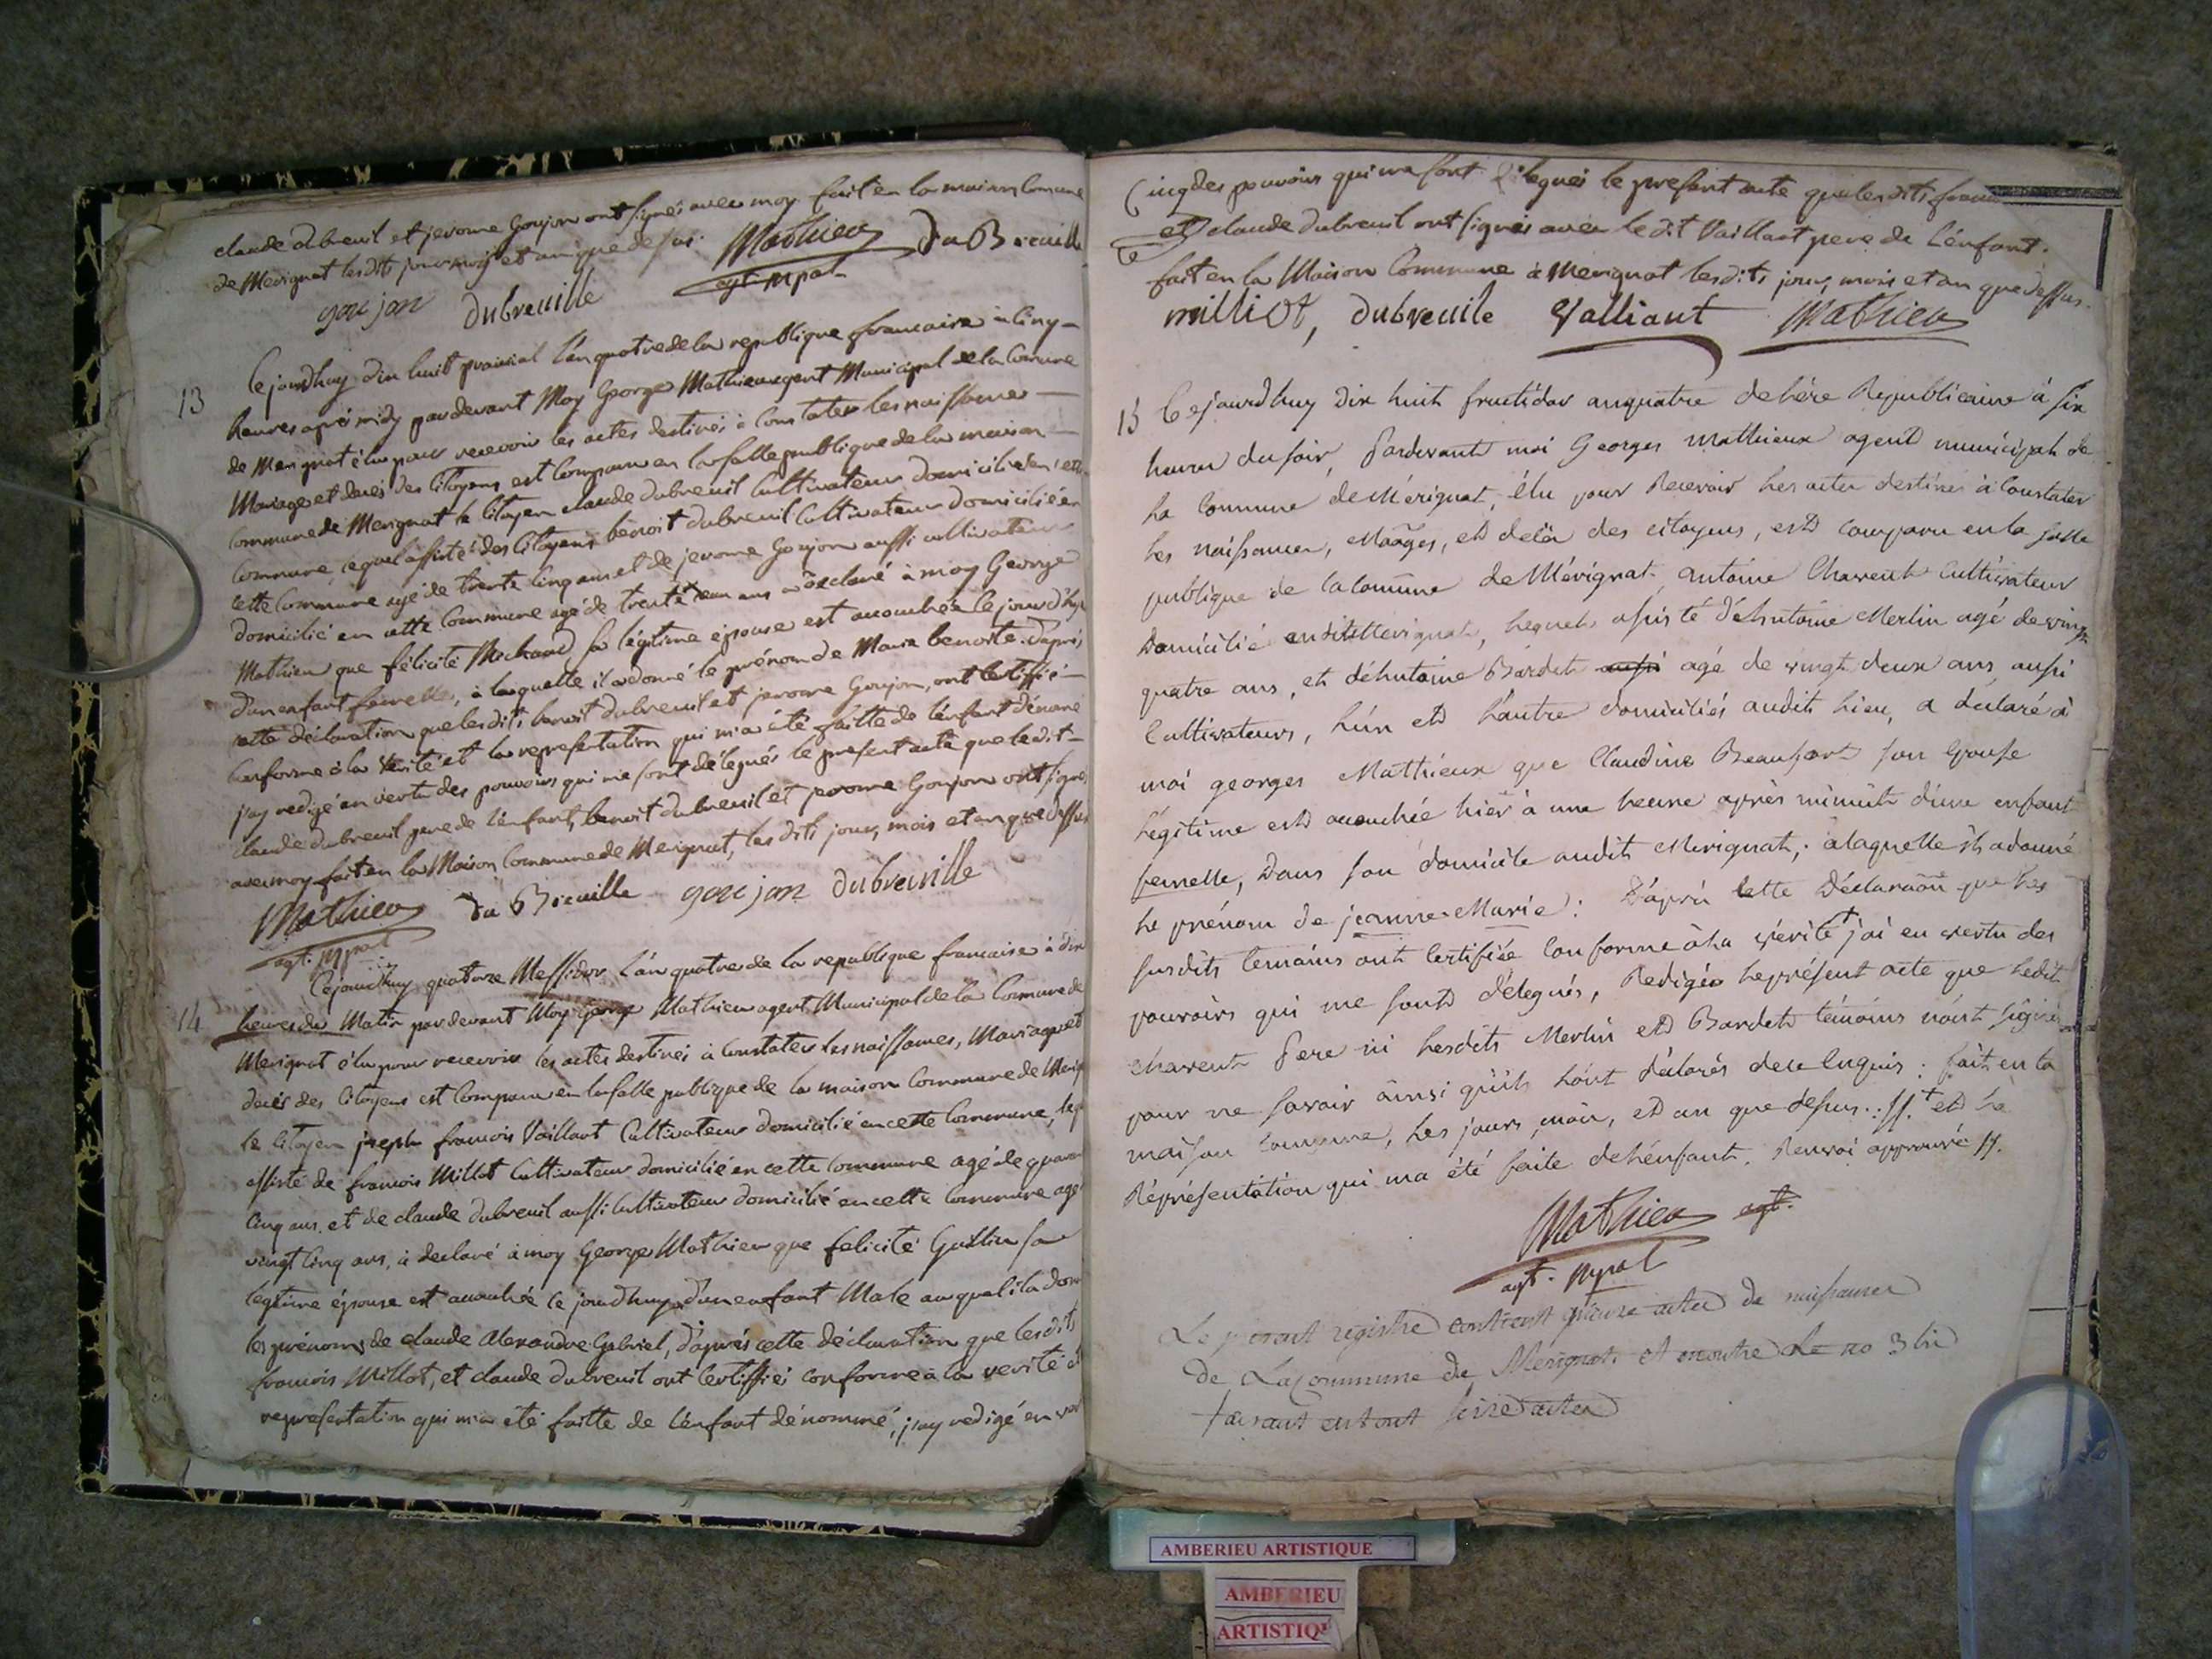 claude dubreuil et jerome Goujon ont signés avec moy. fait en la maison Comune
de Merignat lesdits jour mois et an que dessus. Mathieu Du Breuille
goujon dubreuille agt. mpal
13 Ce jourdhuy dix huit prairial l'an quatre de la republique francaise a cinq
heures apré midy pardevant Moy George Mathieu agent Municipal de la Comune
de Merignat élu pour recevoir les actes destinés à Constater les naissances
Mariage et deces des Citoyens est Comparu en la salle publique de la maison
commune de Merignat le Citoyen claude dubreuil Cultivateur domicilié en cette
Commune, lequel assisté des Citoyens benoit dubreuil Cultivateur domicilié en
cette Commune agé de trente cinq ans et de jerome Goujon aussi cultivateur
domicilié en cette Commune agé de trente ans a declaré à moy George
Mathieu que félicité Michaud sa légitime épouse est accouchée ce jourd'huy
d'un enfant femelle, à laquelle il a donné le prénom de Marie benoite. d'aprés
cette déclaration que lesdits benoit dubreuil et jerome Goujon, ont certiffié
conforme à la verité et la representation qui m'a été faitte de l'enfant dénomé
j'ay redigé en vertu des pouvoirs qui me sont délegués le present acte que ledit
claude dubreuil pere de l'enfant, benoit dubreuil et jerome Goujon ont signé
avec moy fait en la Maison Commune de Merignat, les dits jour, mois et an que dessus
Mathieu du Breuille goujon dubreuille
agt. mpal
Cejourdhuy quatorze Messidor l'an quatre de la republique francaise à dix
14 heures du Matin pardevant Moy George Mathieu agent Municipal de la Comune de
Merignat élu pour recevoir les actes destinés à Constater les naissances, Mariage et
decés des Citoyens est Comparu en la salle publique de la maison Commune de Merig
le Citoyen joseph francois Vaillant Cultivateur domicilié en cette Commune, leq
assisté de francois Millot Cultivateur domicilié en cette Commune agé de quaran
cinq ans. et de claude dubreuil aussi Cultivateur domicilié en cette Commune agé
vingt cinq ans, à declaré à moy George Mathieu que felicité Guillin sa
legitime épouse est accouchée ce jourdhuy d'un enfant Male auquel il a don
les prénoms de claude Alexandre Gabriel, d'aprés cette déclaration que lesdits
francois Millot, et claude dubreuil ont certiffiés conforme à la verité et
representation qui m'a été faitte de l'enfant dénommé, j'ay redigé en ver
des pouvoirs qui me sont délegués le present acte que lesdits
et claude dubreuil ont signés avec ledit Vaillant pere de l'énfant.
fait en la Maison Commune à Merignat lesdits jour, mois et an que dessus.
milliot, dubreuile Valliant Mathieu
15 Cejourdhuy Dix huit fructidor an quatre de l'ére Republicaine à six
heures du soir, Pardevant moi Georges Mathieux agent municipal de
la Commune de Mérignat, élu pour Recevoir les actes destinés à Constater
les naissances, Mãages, et decès des citoyens, est comparu en la salle
publique de la comũne de Mérignat. Antoine Charent Cultivateur
Domicilié audit Merignat, lequel assisté d'Antoine Merlin agé de vingt
quatre ans, et d'Antoine Bardet aussi agé de vingt deux ans, aussi
Cultivateurs, l'un et l'autre domiciliés audit lieu, a declaré à
moi georges Mathieux que Claudine Beaufort son Epouse
légitime est accouchée hièr à une heure après minuit d'une enfant
femelle, Dans son domicile audit Merignat, à laquelle il a donné
le prénom de jeanne-Marie: D'après cette Déclaraõn que les
susdits temoins ont certifiée conforme à la vérité + j'ai en vertu des
pouvoirs qui me sont délegués, Redigés le présent acte que ledit
Charent Pere ni lesdits Merlin et Bardet témoins n'ont signés
pour ne savoir ainsi qu'ils l'ont déclarés de ce Enquis: fait en la
maison commune, les jours, mois, et an que dessus. //. + et la
Réprésentation qui ma été faite de l'enfant. Renvoi approuvé //.
Mathieu agt.
agt. mpal
Le présent registre contient quinze actes de naissances
de La Commune de Mérignat et en outre Le no 3 bis
faisant en tout seize actes
AMBERIEU ARTISTIQUE
AMBERIEU
ARTISTIQ